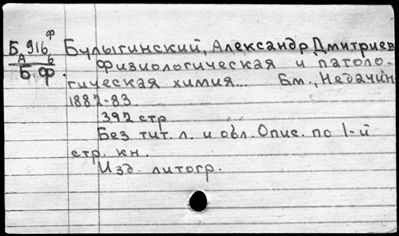 Б 916 ф Булыгинский, Александр Дмитриев
А 6 Физиологическая и патоло-
Б. Ф. гическая химия... Бм.,
1882-83
392 стр
Без тит. л. и обл. Опис. по 1-й
стр. кн.
Изд. литогр.